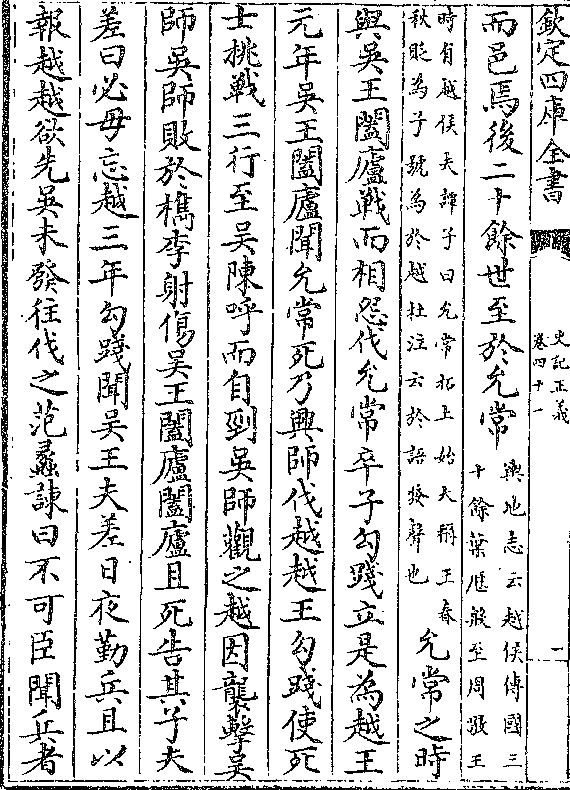 欽定四庫全書
史記正義
卷四十一
一
而邑焉後二十餘世至於允常輿地志云越侯傳國三
十餘葉歷殷至周敬王
時有越侯夫譚子曰允常拓土始大稱王春
秋貶為子號為於越杜注云於語發聲也允常之時
與吳王闔廬戰而相怨伐允常卒子勾踐立是為越王
元年吳王闔廬聞允常死乃興師伐越越王勾踐使死
士挑戰三行至吳陳呼而自剄吳師觀之越因襲擊吳
師吳師敗於檇李射傷吳王闔廬闔廬且死告其子夫
差曰必毋忘越三年勾踐聞吳王夫差日夜勤兵且以
報越越欲先吳未發往伐之范蠡諫曰不可臣聞兵者